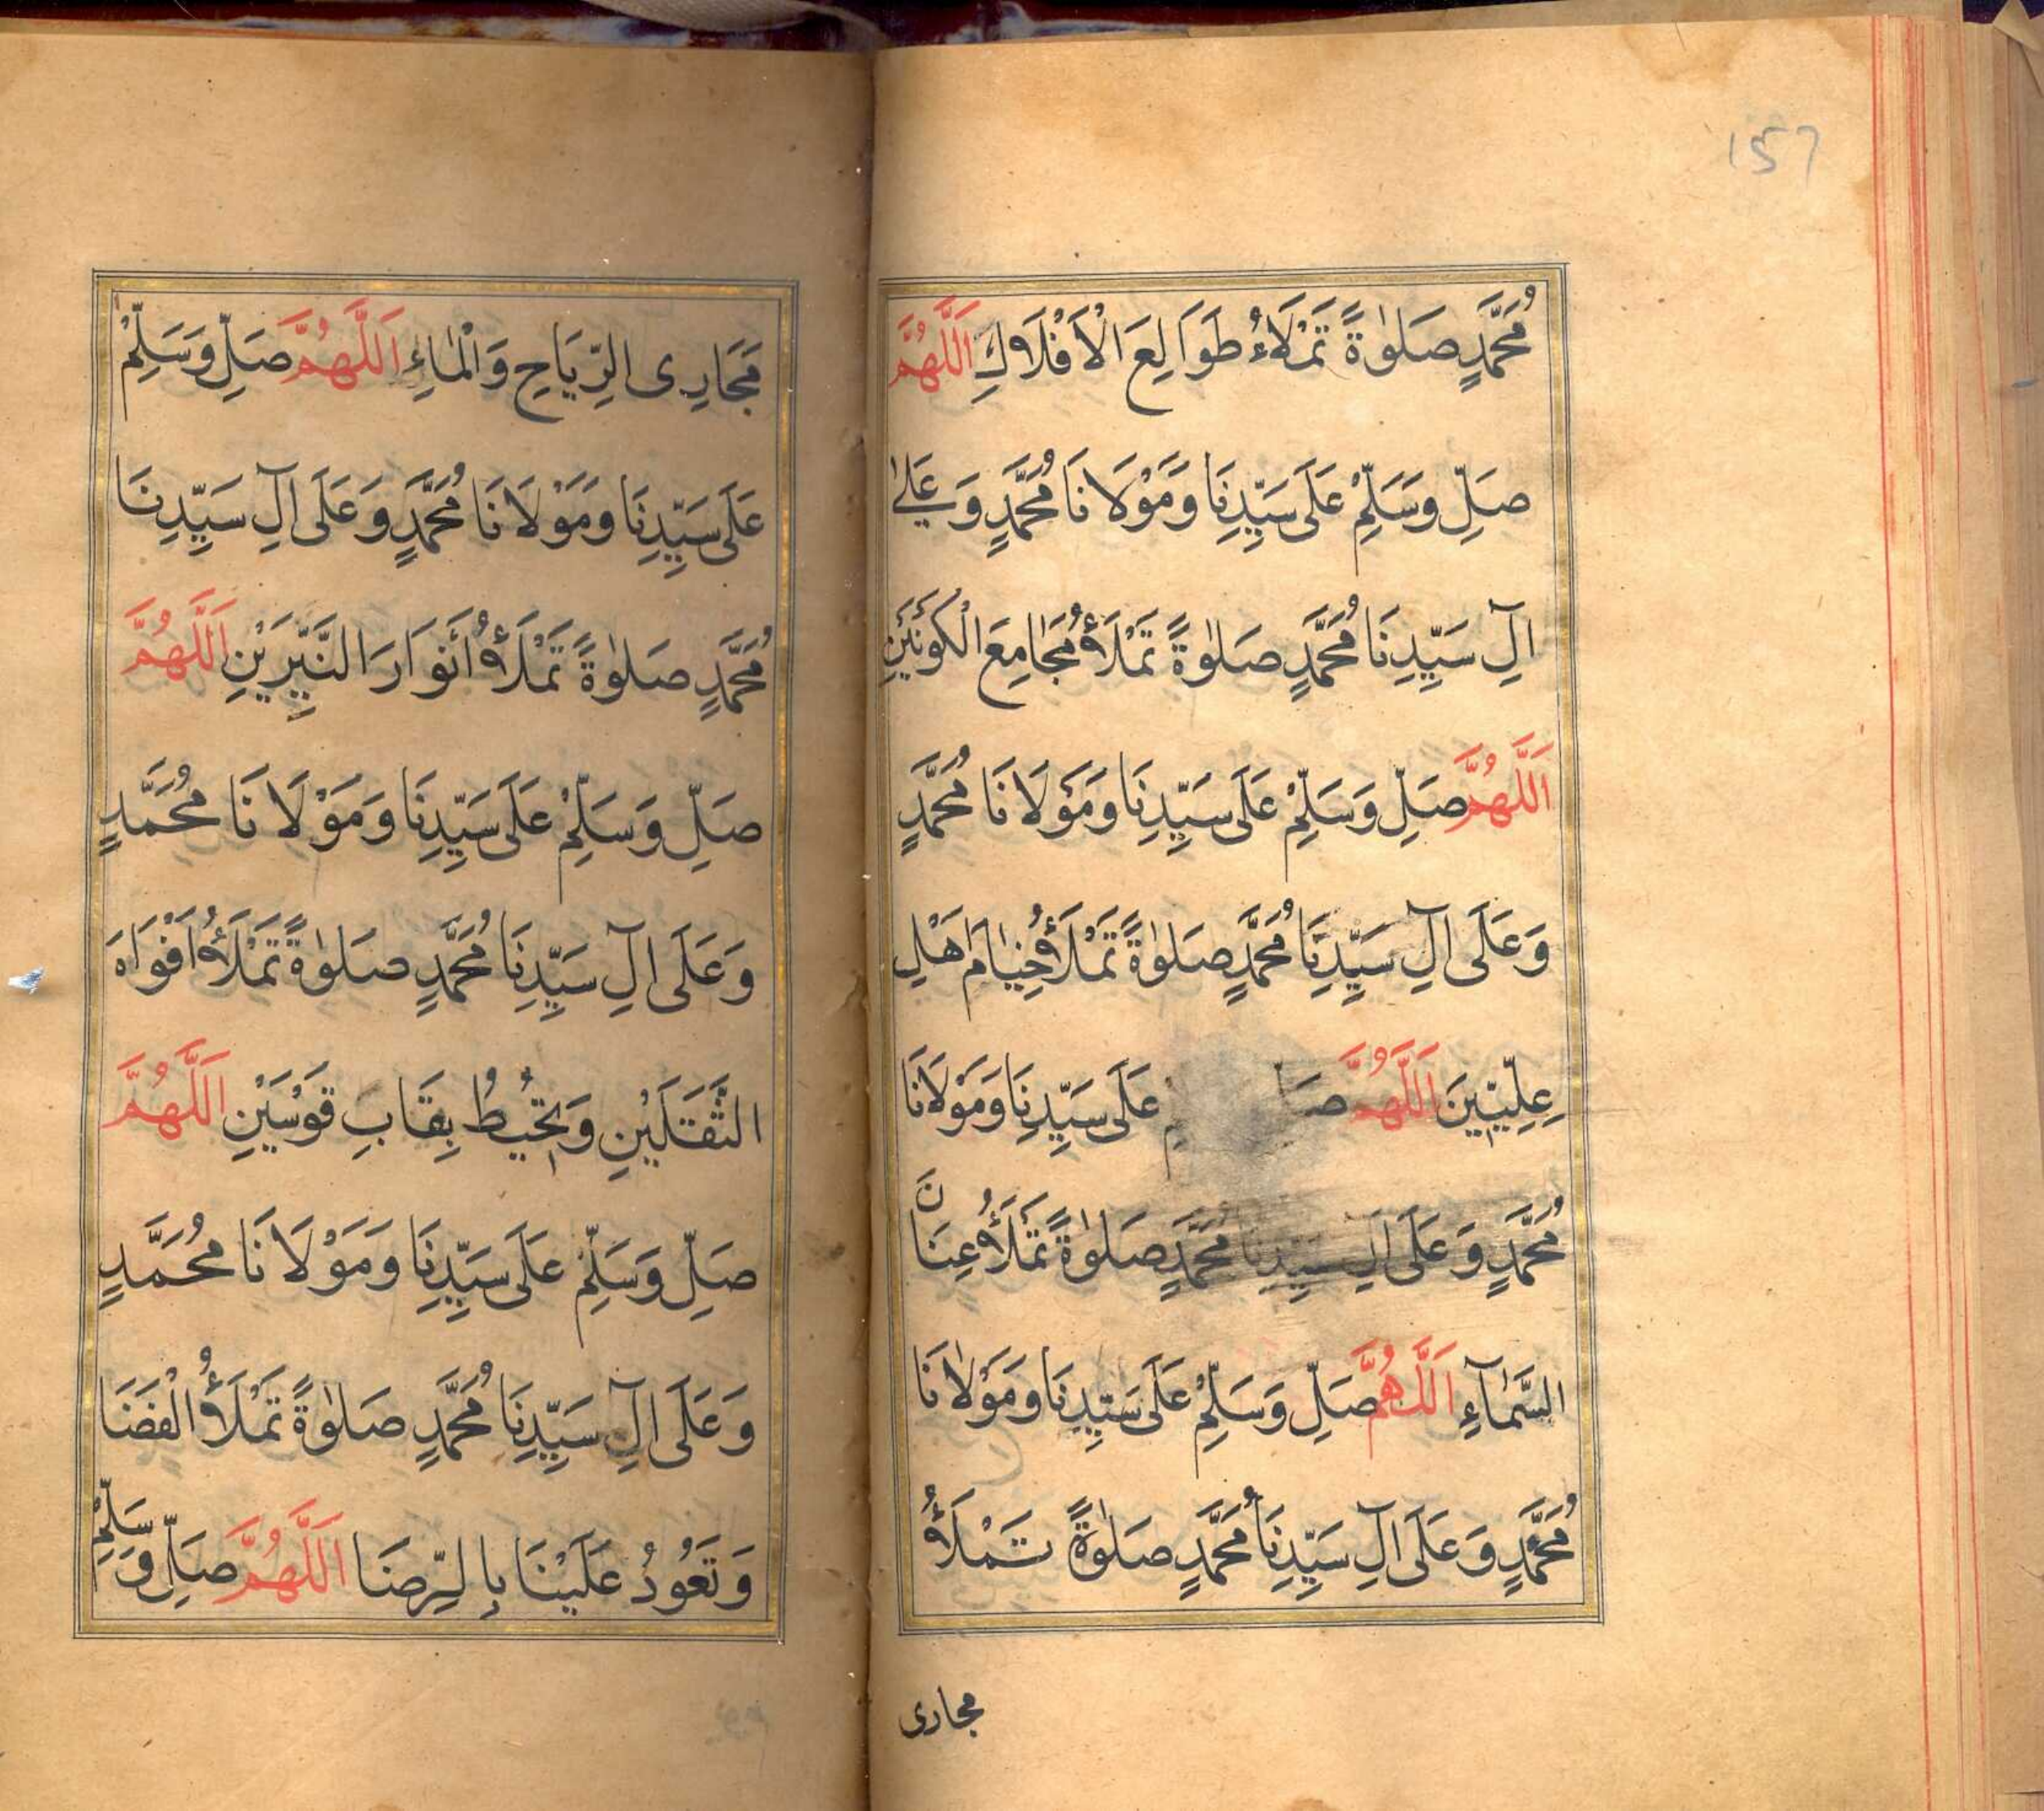 157
مُحَمَّدٍ صَلٰوةً تَمْلَاءُ طَوَالِعَ الْاَفْلَاكِ اَللّٰهُمَّ
صَلِّ وَسَلِّمْ عَلَى سَيِّدِنَا وَمَوْلَانَا مُحَمَّدٍ وَعَلٰى
اٰلِ سَيِّدِنَا مُحَمَّدٍ صَلٰوةً تَمْلَأُ مَجَامِعَ الْكَوْنَيْنِ
اَللّٰهُمَّ صَلِّ وَسَلِّمْ عَلَى سَيِّدِنَا وَمَوْلَانَا مُحَمَّدٍ
وَعَلَى اٰلِ سَيِّدِنَا مُحَمَّدٍ صَلٰوةً تَمْلَأُ خِيَامَ اَهْلِ
عِلِيّٖينَ اَللّٰهُمَّ عَلَى سَيِّدِنَا وَمَوْلَانَا
مُحَمَّدٍ وَعَلَى اٰلِ سَيِّدِنَا مُحَمَّدٍ صَلٰوةً تَمْلَأُ عِنَانَ
السَّمَآءِ اَللّٰهُمَّ صَلِّ وَسَلِّمْ عَلَى سَيِّدِنَا وَمَوْلَانَا
مُحَمَّدٍ وَعَلَى اٰلِ سَيِّدِنَا مُحَمَّدٍ صَلٰوةً تَمْلَأُ
مجارى
مَجَارِى الرِّيَاحِ وَالْمَاءِ اَللّٰهُمَّ صَلِّ وَسَلِّمْ
عَلَى سَيِّدِنَا وَمَوْلَانَا مُحَمَّدٍ وَعَلَى اٰلِ سَيِّدِنَا
مُحَمَّدٍ صَلٰوةً تَمْلَأُ أَنْوَارَ النَّيِّرَيْنِ اَللّٰهُمَّ
صَلِّ وَسَلِّمْ عَلَى سَيِّدِنَا وَمَوْلَانَا مُحَمَّدٍ
وَعَلَى اٰلِ سَيِّدِنَا مُحَمَّدٍ صَلٰوةً تَمْلَأُ اَفْوَاهَ
الثَّقَلَيْنِ وَتُحٖيطُ بِقَابَ قَوْسَيْنِ اَللّٰهُمَّ
صَلِّ وَسَلِّمْ عَلَى سَيِّدِنَا وَمَوْلَانَا مُحَمَّدٍ
وَعَلَى اٰلِ سَيِّدِنَا مُحَمَّدٍ صَلٰوةً تَمْلَأُ الْفَضَا
وَتَعُودُ عَلَيْنَا بِالرِّضَا اَللّٰهُمَّ صَلِّ وَسَلِّمْ